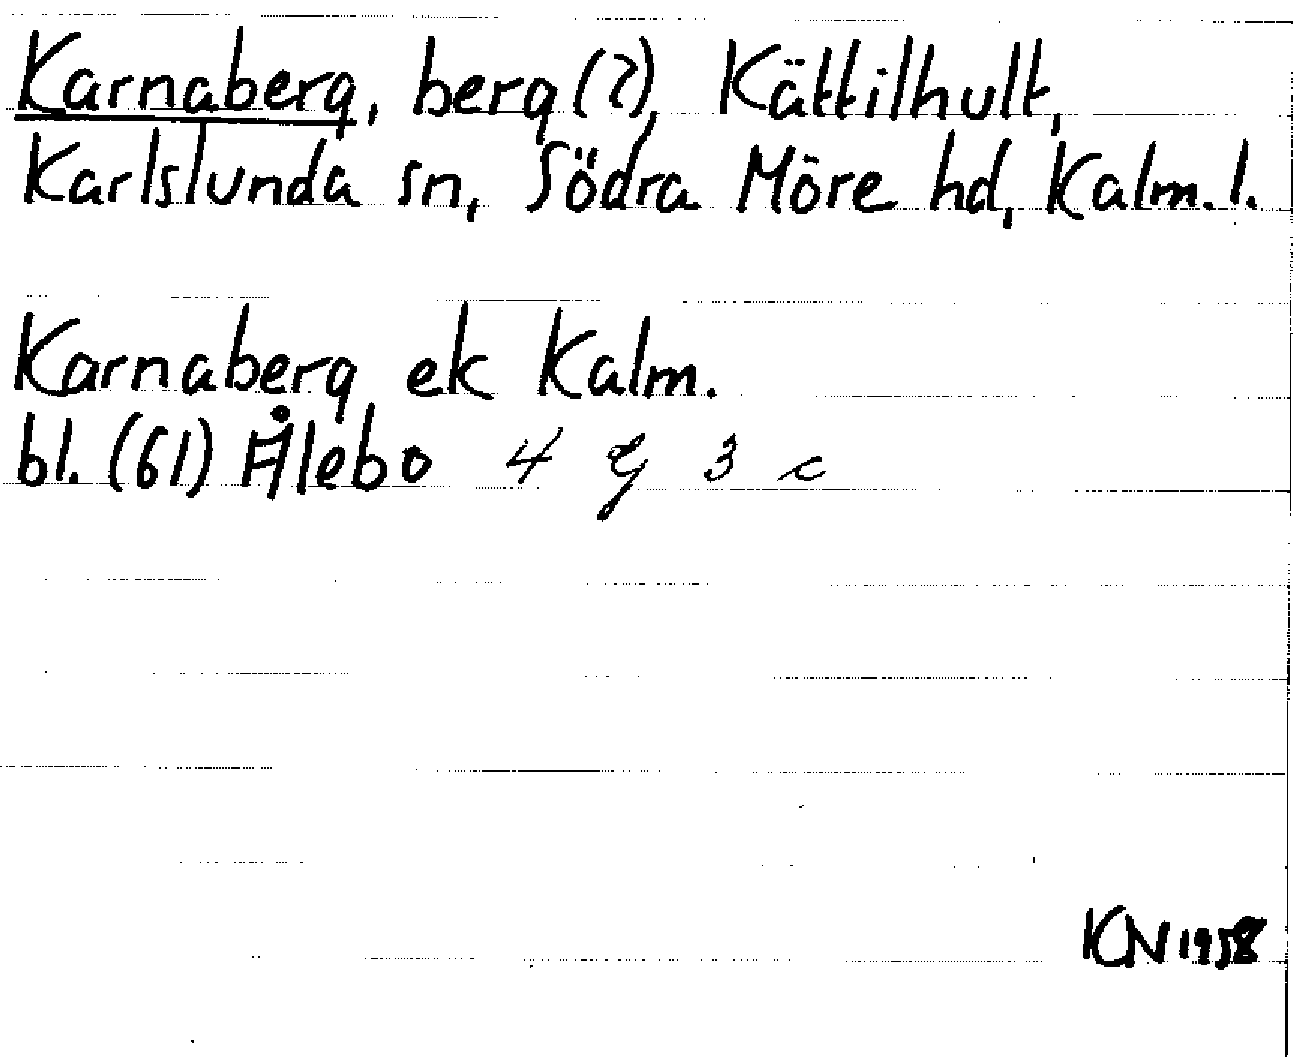 Karnaberg, berg (?), Kättilhult,
Karlslunda sn, Södra Möre hd, Kalm. l.
Karnaberg ek Kalm.
bl. (61) Ålebo 4 G 3 c
KN 1958